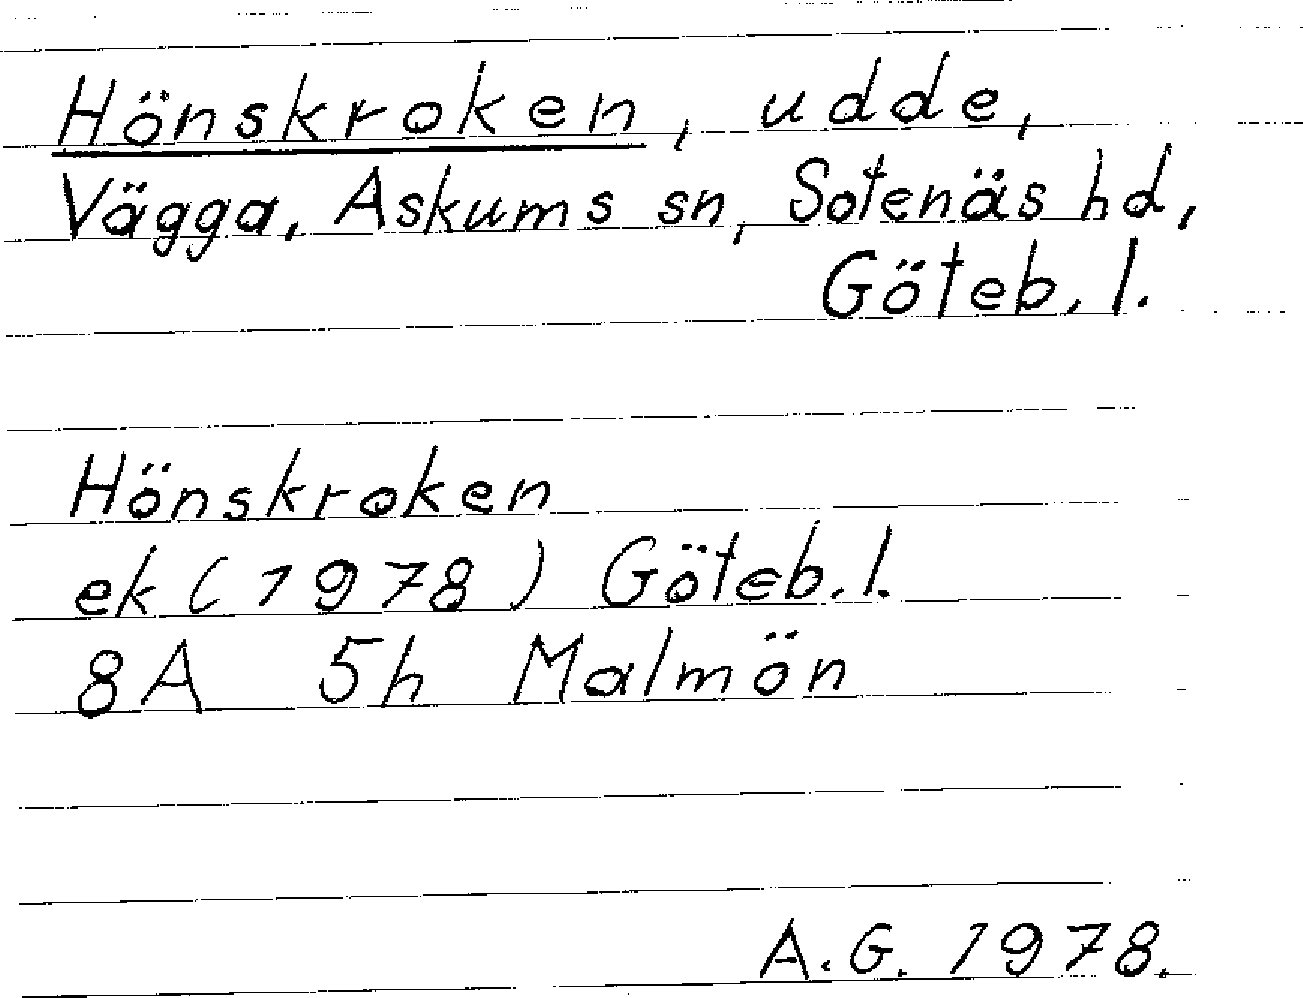 Hönskroken, udde,
Vägga, Askums sn, Sotenäs hd,
Göteb. l.
Hönskroken
ek (1978) Göteb. l.
8A 5h Malmön
A.G. 1978.